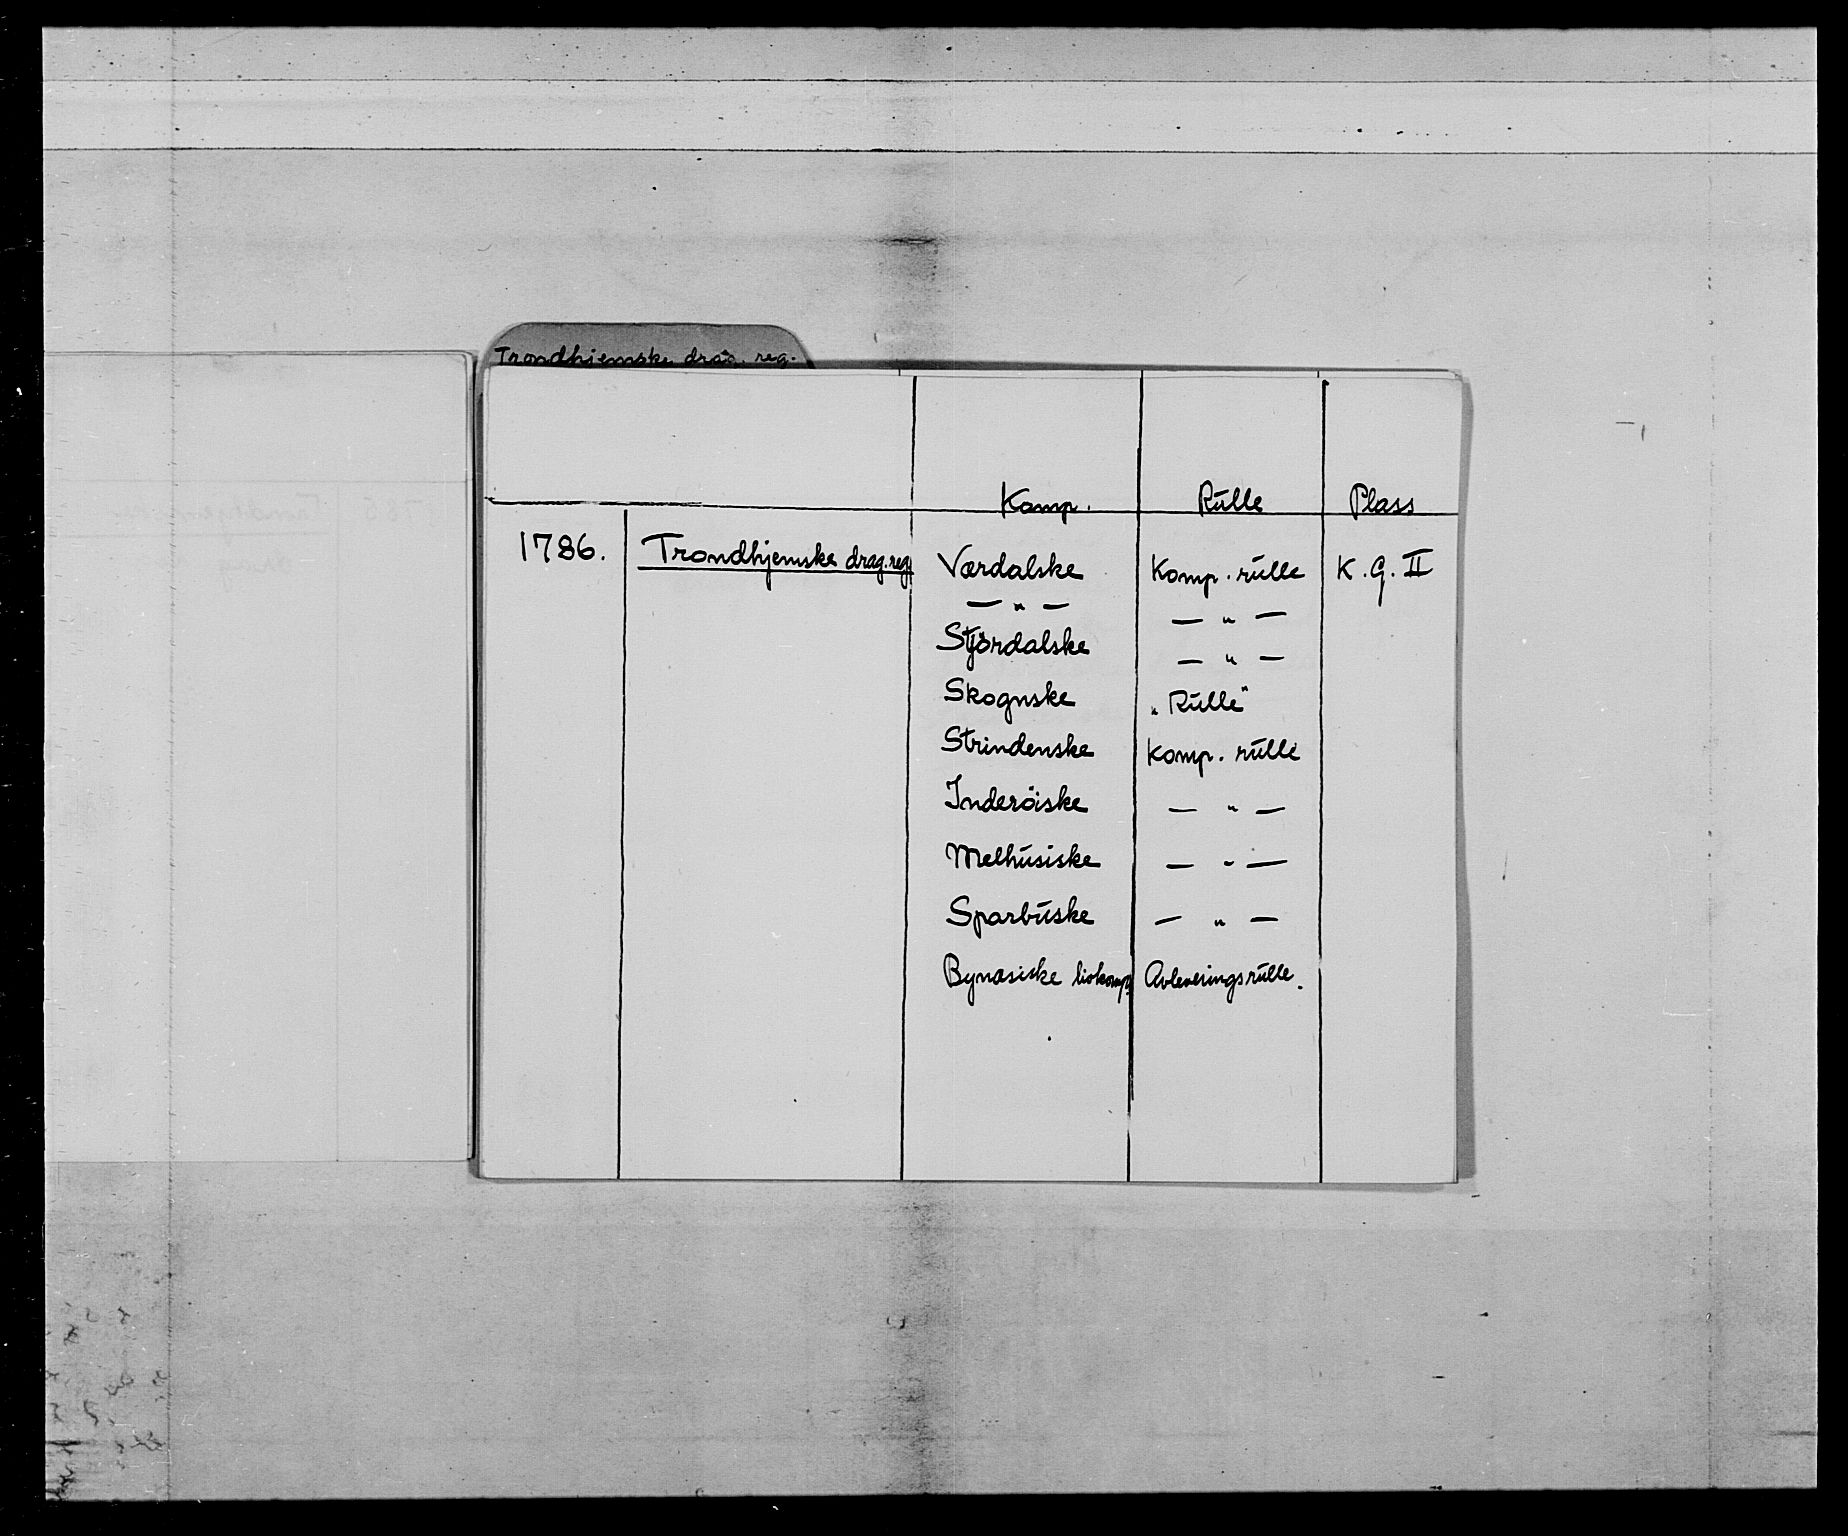 Trondhjemske drag. reg.
Komp. Rulle Plass
1786. Trondhjemske drag. reg. Værdalske Komp. rulle K.G. II
— " — — " —
Stjördalske — " —
Skognske "Rulle"
Strindenske Komp. rulle
Inderöiske — " —
Melhusiske — " —
Sparbuske — " —
Bynæsiske livkomp. Avleveringsrulle.